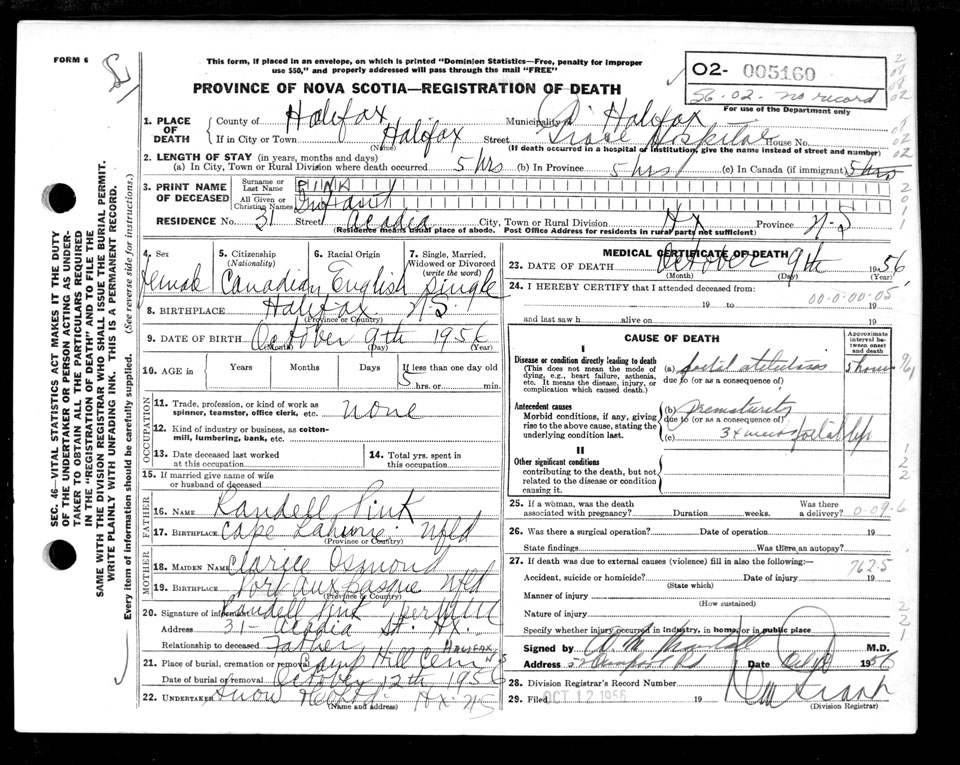 FORM 6
This form, if placed in an envelope, on which is printed "Dominion Statistics—Free, penalty for improper
use $50," and properly addressed will pass through the mail "FREE"
PROVINCE OF NOVA SCOTIA—REGISTRATION OF DEATH
02- 005160
56-02- no record
For use of the Department only
SEC. 46—VITAL STATISTICS ACT MAKES IT THE DUTY
OF THE UNDERTAKER OR PERSON ACTING AS UNDER-
TAKER TO OBTAIN ALL THE PARTICULARS REQUIRED
IN THE "REGISTRATION OF DEATH" AND TO FILE THE
SAME WITH THE DIVISION REGISTRAR WHO SHALL ISSUE THE BURIAL PERMIT.
WRITE PLAINLY WITH UNFADING INK. THIS IS A PERMANENT RECORD.
Every item of information should be carefully supplied. (See reverse side for instructions.)
1. PLACE OF DEATH
County of Halifax Municipality Halifax
If in City or Town Halifax Street Grace Hospital House No.
(Name) (If death occurred in a hospital or institution, give the name instead of street and number)
2. LENGTH OF STAY (in years, months and days)
(a) In City, Town or Rural Division where death occurred 5 hrs (b) In Province 5 hrs (c) In Canada (if immigrant) 5 hrs
3. PRINT NAME OF DECEASED
Surname or Last Name PINK
All Given or Christian Names Infant
RESIDENCE No. 31 Street Acadia City, Town or Rural Division HX Province N-S
(Residence means usual place of abode. Post Office Address for residents in rural parts not sufficient)
4. Sex female
5. Citizenship (Nationality) Canadian
6. Racial Origin English
7. Single, Married, Widowed or Divorced (write the word) Single
8. BIRTHPLACE Halifax NS
(Province or Country)
9. DATE OF BIRTH October 9th 1956
(Month) (Day) (Year)
10. AGE in Years Months Days If less than one day old
5 hrs. or min.
OCCUPATION
11. Trade, profession, or kind of work as
spinner, teamster, office clerk, etc. none
12. Kind of industry or business, as cotton-
mill, lumbering, bank, etc.
13. Date deceased last worked
at this occupation
14. Total yrs. spent in
this occupation
15. If married give name of wife
or husband of deceased
FATHER
16. NAME Randell Pink
17. BIRTHPLACE Cape Lahune Nfld
(Province or Country)
MOTHER
18. MAIDEN NAME Clarice Osmond
19. BIRTHPLACE Port Aux Basque Nfld
(Province or Country)
20. Signature of informant Randell Pink
Address 31- Acadia St. HX.
Relationship to deceased Father
21. Place of burial, cremation or removal Camp Hill Cem HALIFAX NS
Date of burial or removal October 12th 1956
22. UNDERTAKER Snow HX. NS
(Name and address)
MEDICAL CERTIFICATE OF DEATH
23. DATE OF DEATH October 9th 1956
(Month) (Day) (Year)
24. I HEREBY CERTIFY that I attended deceased from:
19 to 19
00-0-00-05
and last saw h alive on 19
CAUSE OF DEATH
Approximate interval between onset and death
I
Disease or condition directly leading to death
(This does not mean the mode of
dying, e.g., heart failure, asthenia,
etc. It means the disease, injury, or
complication which caused death.)
(a) foetal atelectasis 5 hours
due to (or as a consequence of)
Antecedent causes
Morbid conditions, if any, giving
rise to the above cause, stating the
underlying condition last.
(b) prematurity
due to (or as a consequence of)
(c) foetal
II
Other significant conditions
contributing to the death, but not
related to the disease or condition
causing it.
25. If a woman, was the death
associated with pregnancy? Duration weeks. Was there
a delivery? 0-09-6
26. Was there a surgical operation? Date of operation 19
State findings Was there an autopsy?
27. If death was due to external causes (violence) fill in also the following:—
762.5
Accident, suicide or homicide? Date of injury 19
(State which)
Manner of injury
(How sustained)
Nature of injury
Specify whether injury occurred in industry, in home, or in public place
Signed by M.D.
Address Date 1956
28. Division Registrar's Record Number
29. Filed OCT 12 1956 19
(Division Registrar)